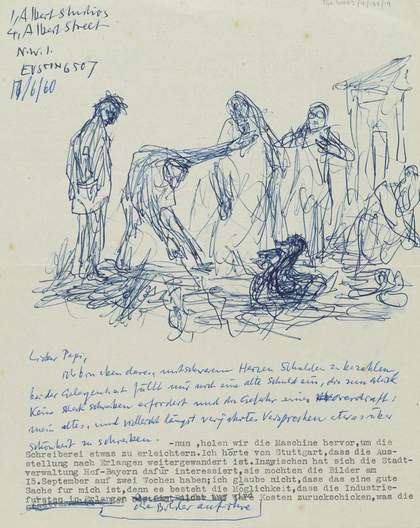 1, Albert Studios
4, Albert Street
N.W.1.
EUSTON 6507
17/6/60
Lieber Pepi,
ich bin eben daran, mit schwerem Herzen Schulden zu bezahlen
bei der Gelegenheit fällt mir auch eine alte Schuld ein, die zum Glück
keine Check schreiben erfordert und die Gefahr eines overdraft:
mein altes, und vielleicht längst verjährtes Versprechen etwas über
Schönheit zu schreiben. -nun ,holen wir die Maschine hervor,um die
Schreiberei etwas zu erleichtern.Ich hörte von Stuttgart,dass die Aus-
stellung nach Erlangen weitergewandert ist.Inzwischen hat sich die Stadt-
verwaltung Hof-Bayern dafür interessiert,sie mochten die Bilder am
15.September auf zwei Wochen haben;ich glaube nicht,dass das eine gute
Sache für mich ist,denn es besteht die Möglichkeit,dass die Industrie-
fursten in Erlangen auf ihre Kosten zurückschicken,was die
die Bilder auf ihre